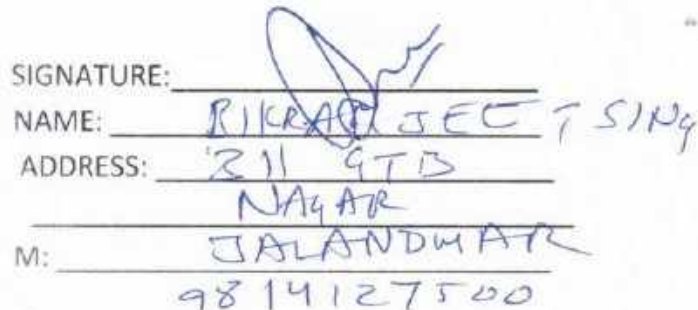 SIGNATURE:
NAME: BIKRAMJEET SING
ADDRESS: 211 GTB
NAGAR
M: JALANDHAR
9814127500